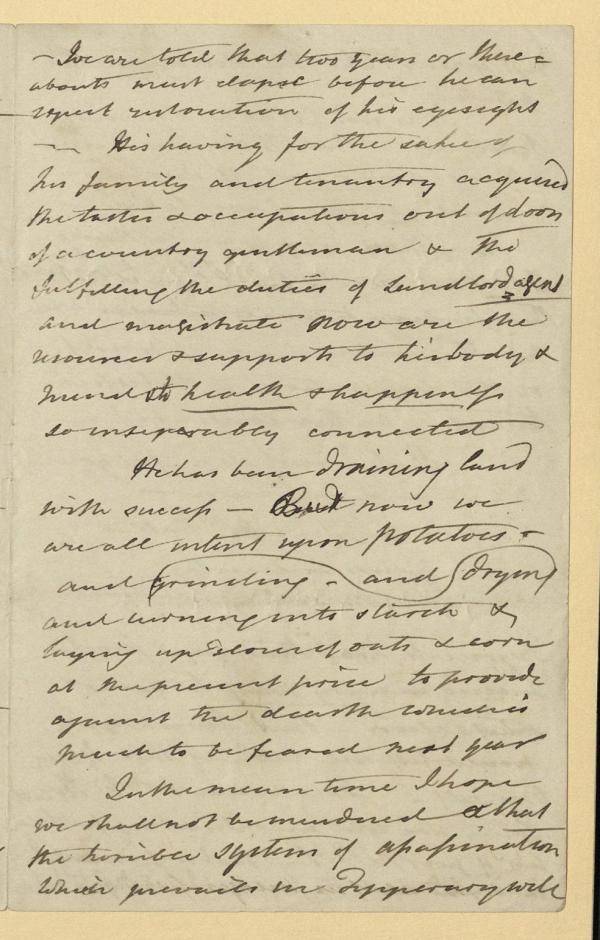 – We are told that two years or there=
abouts must elapse before he can
expect restoration of his eyesight
— His having for the sake of
his family and tenantry acquired
the tastes & occupations out of doors
of a country gentleman & the
fulfilling the duties of Landlord, agent
and magistrate now are the
resources & supports to his body &
mind to health & happiness
so inseparably connected
He has been draining land
with success — But now we
are all intent upon potatoes –
and grinding – and drying
and turning into starch &
laying up stores of oats & corn
at the present price to provide
against the dearth which is
much to be feared next year
In the mean time I hope
we shall not be murdered & that
the horrible system of assassination
which prevails in Tipperary will